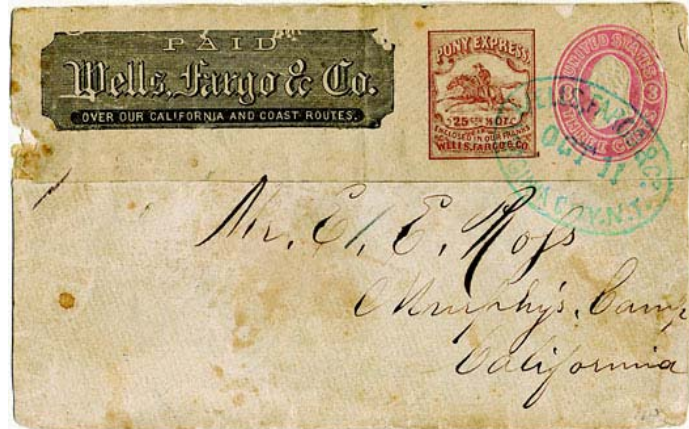 PAID
Wells, Fargo & Co.
OVER OUR CALIFORNIA AND COAST ROUTES.
PONY EXPRESS.
25 CTS
ENCLOSED IN OUR FRANKS
WELLS, FARGO & CO
UNITED STATES
3 3
THREE CENTS
WELLS, FARGO & CO.
OCT 11
CITY. N.T.
Mr. E. Ross
Murphy's Camp
California